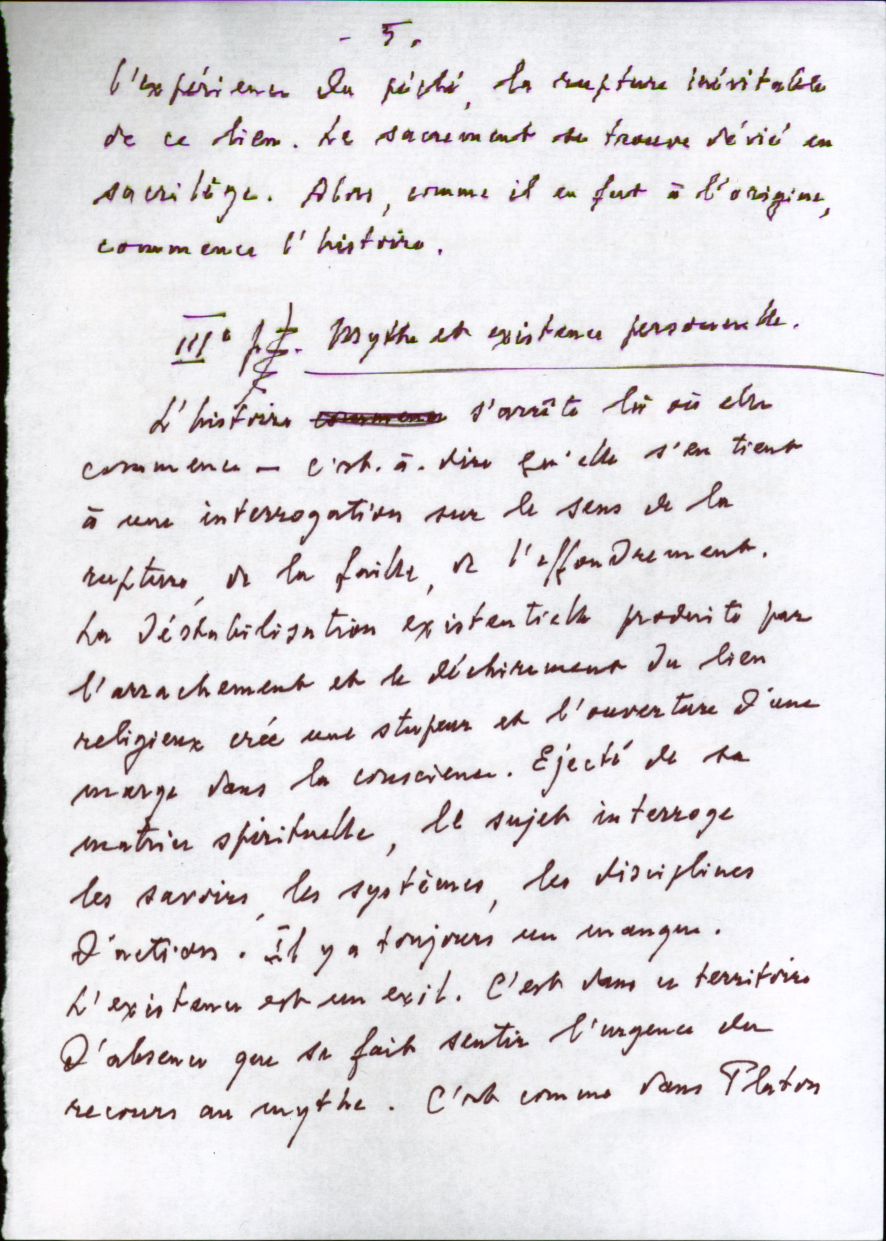 - 5.
l'expérience du péché, la rupture inévitable
de ce lien. Le sacrement se trouve dévié en
sacrilège. Alors, comme il en fut à l'origine,
commence l'histoire.
III° Mythe et existence personnelle.
L'histoire s'arrête là où elle
commence — c'est-à-dire qu'elle s'en tient
à une interrogation sur le sens de la
rupture, de la faille, de l'effondrement.
La déstabilisation existentielle produite par
l'arrachement et le déchirement du lien
religieux crée une stupeur et l'ouverture d'une
marge dans la conscience. Ejecté de sa
matrice spirituelle, le sujet interroge
les savoirs, les systèmes, les disciplines
d'action. Il y a toujours un manque.
L'existence est un exil. C'est dans ce territoire
d'absence que se fait sentir l'urgence du
recours au mythe. C'est comme dans Platon